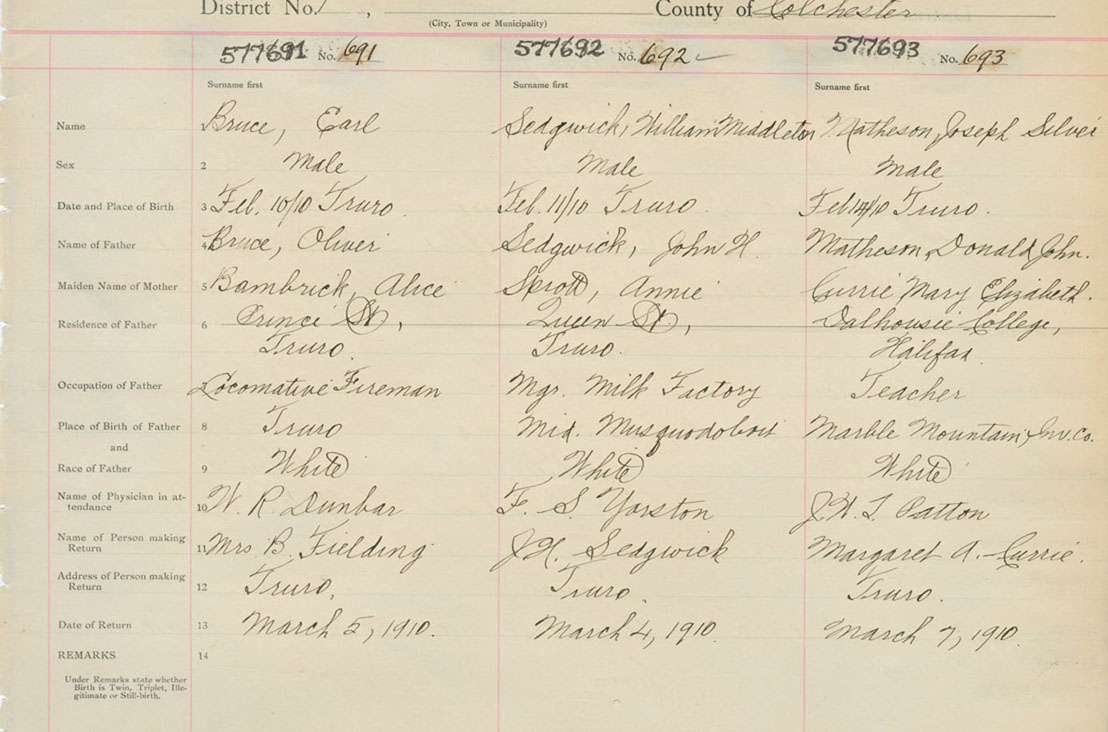 District No. 1 , County of Colchester
(City, Town or Municipality)
577691 No. 691 577692 No. 692 577693 No. 693
Surname first Surname first Surname first
Name Bruce, Earl Sedgwick, William Middleton Matheson, Joseph Silver
Sex 2 Male Male Male
Date and Place of Birth 3 Feb. 10/10 Truro. Feb. 11/10 Truro. Feb /10 Truro.
Name of Father 4 Bruce, Oliver Sedgwick, John H. Matheson, Donald John.
Maiden Name of Mother 5 Bambrick, Alice Sprott, Annie Currie Mary Elizabeth.
Residence of Father 6 Prince St, Queen St, Dalhousie College,
Truro. Truro. Halifax.
Occupation of Father Locomative Fireman Mgr. Milk Factory Teacher
Place of Birth of Father 8 Truro Mid. Musquodoboit Marble Mountain, Inv. Co.
and
Race of Father 9 White White White
Name of Physician in at-
tendance 10 W. R. Dunbar F. S. Yorston J.H.T. Patton
Name of Person making
Return 11 Mrs. B. Fielding J.H. Sedgwick Margaret A. Currie.
Address of Person making
Return 12 Truro. Truro. Truro.
Date of Return 13 March 5, 1910. March 4, 1910. March 7, 1910.
REMARKS 14
Under Remarks state whether
Birth is Twin, Triplet, Ille-
gitimate or Still-birth.